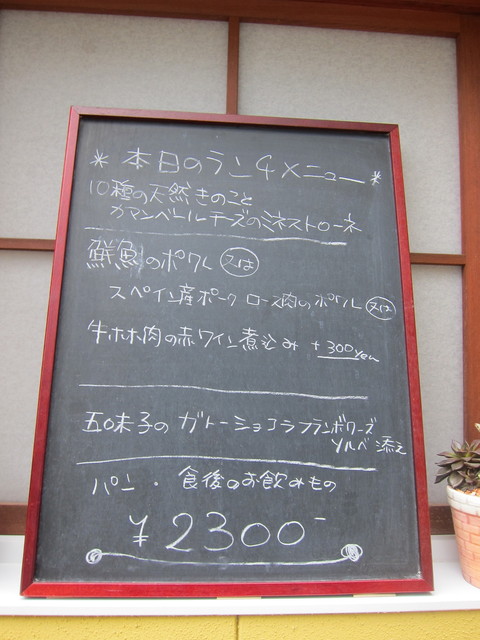 * 本日のランチメニュー *
10種の天然きのこと
カマンベールチーズのミネストローネ
鮮魚のポワレ 又は
スペイン産ポーク ロース肉のポワレ 又は
牛ホホ肉の赤ワイン煮込み +300yen
五味子の ガトーショコラフランボワーズ
ソルベ 添え
パン・食後のお飲みもの
¥2300-